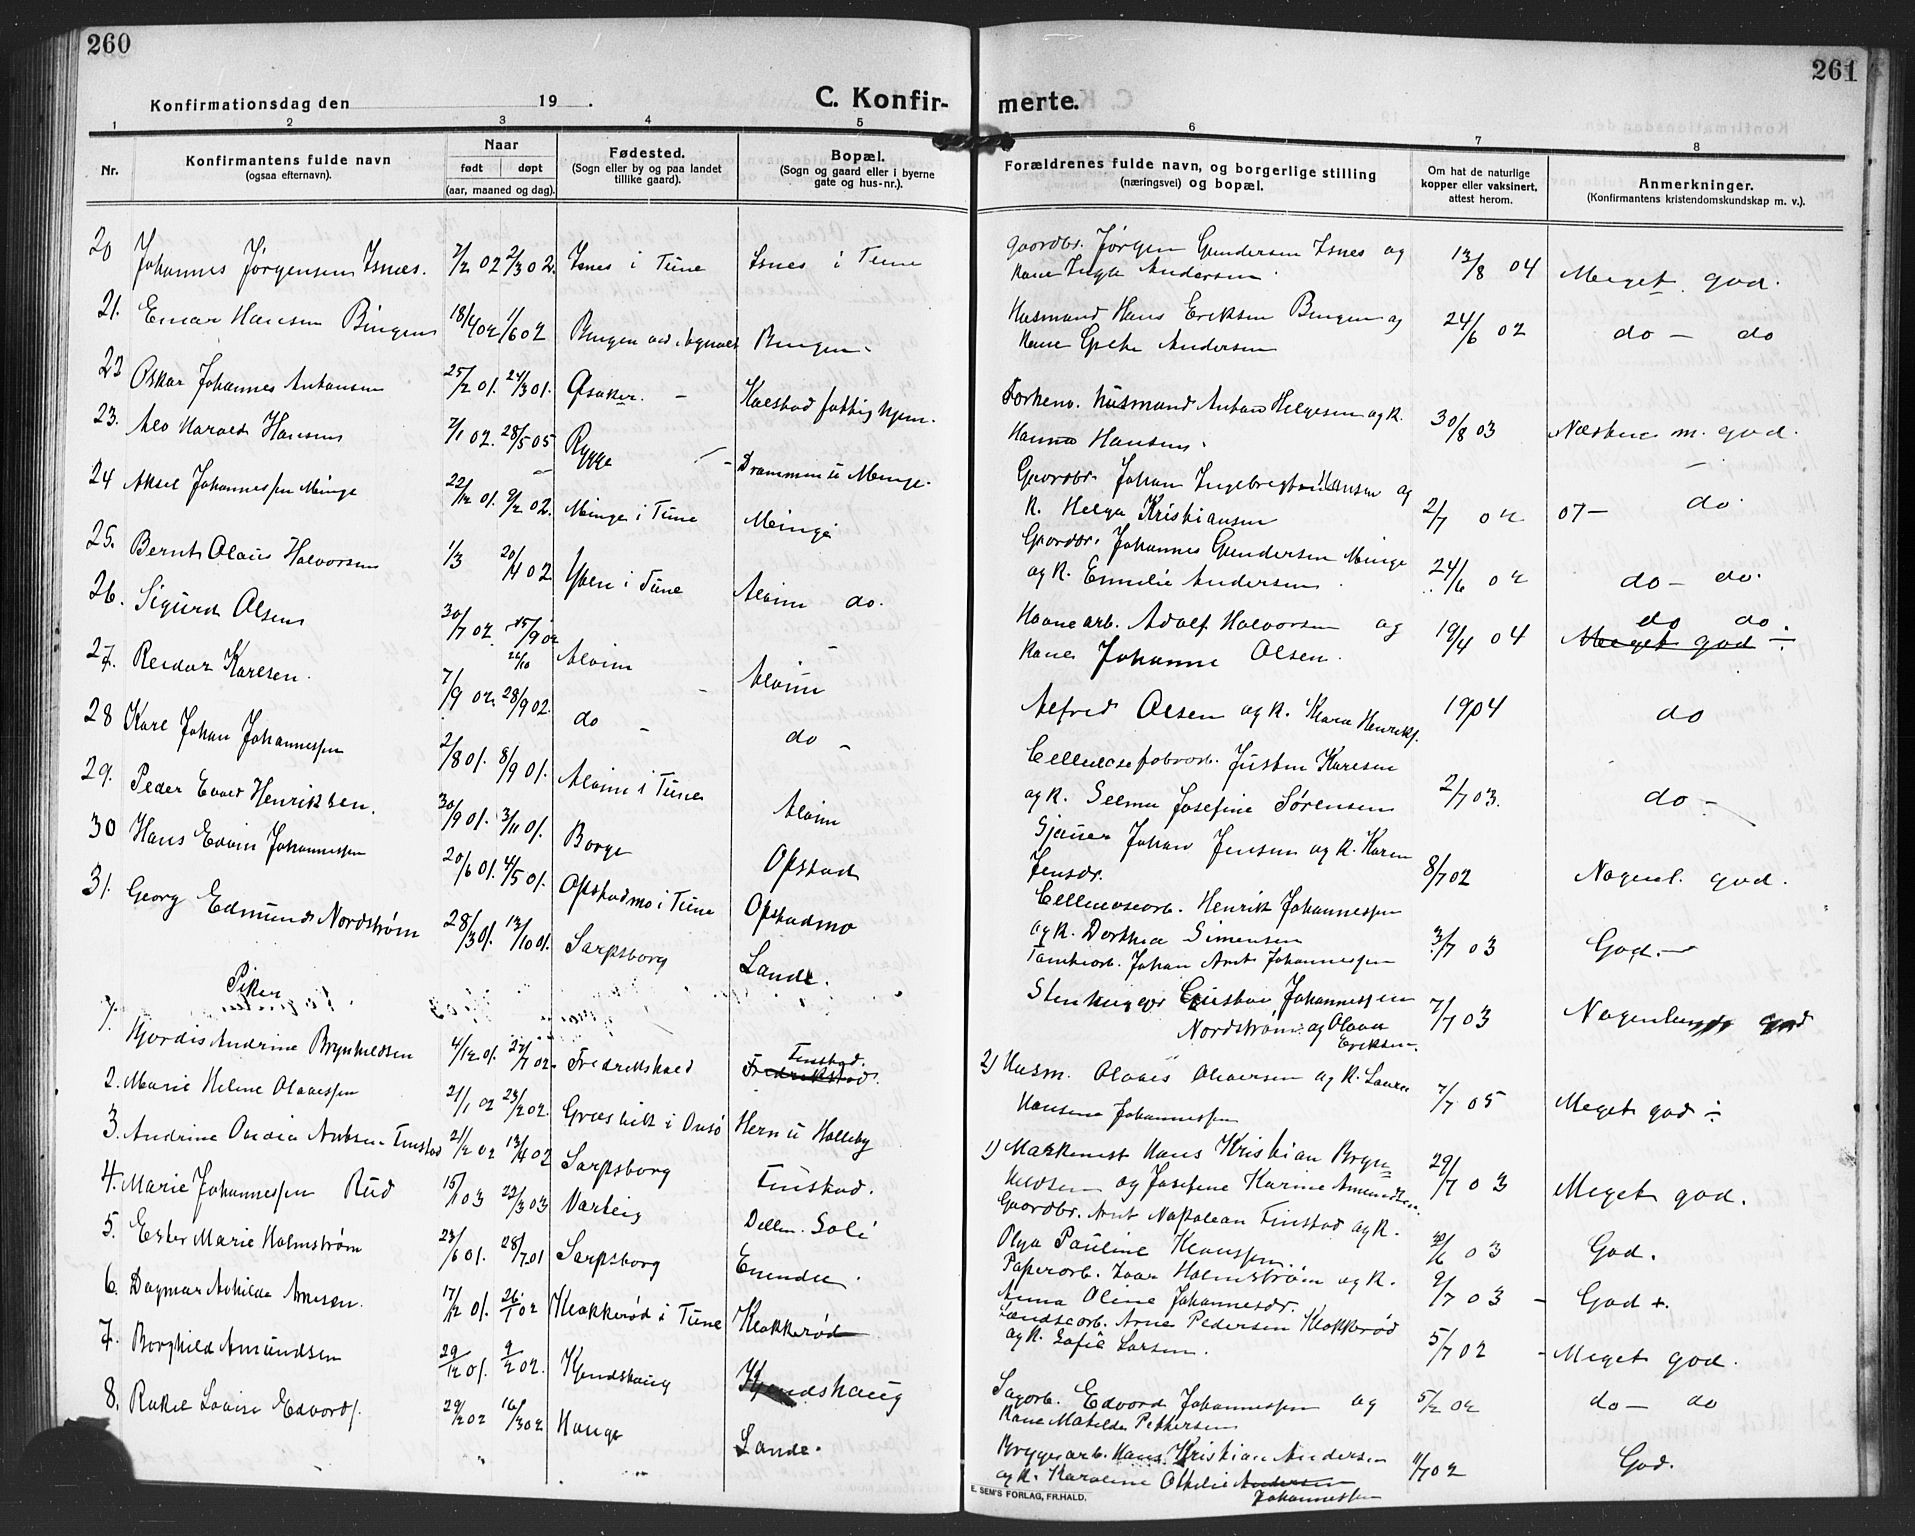 260
Konfirmationsdag den 19 .
C. Konfir-
1 2 3 4 5
Nr.
Konfirmantens fulde navn
(ogsaa efternavn).
Naar
født døpt
(aar, maaned og dag).
Fødested.
(Sogn eller by og paa landet
tillike gaard).
Bopæl.
(Sogn og gaard eller i byerne
gate og hus-nr.).
20 Johannes Jørgensen Isnes. 7/2 02 2/3 02. Isnes i Tune Isnes i Tune
21. Einar Hansen Bingen 18/4 02 1/6 02 Bingen Bingen
22 Oskar Johannes Antonsen 25/2 01. 24/3 01. Kalstad fattighjem.
23. Alv Harald Hansen 7/1 02. 28/5 05 Rygge Drammen u Minge.
24 Aksel Johannessen Minge 22/12 01. 9/2 02. Minge i Tune Minge
25. Bernt Olaus Halvorsen 1/3 20/4 02 Yven i Tune Alvim do.
26. Sigurd Olsen 30/7 02. 15/9 02 Alvim Alvim
27. Reidar Karlsen. 7/9 02. 28/9 02. do - do -
28 Karl Johan Johannessen 2/8 01. 8/9 01. Alvim i Tune Alvim
29. Peder Henriksen. 30/9 01. 3/11 01. Borge Opstad
30 Hans Edvin Johannessen 20/6 01. 4/5 01. Opstadmo i Tune Opstadmo
31. Georg Edmund Nordstrøm 28/3 01. 13/10 01. Sarpsborg Lande.
Piker
1. Hjordis Andrine Brynhildsen 4/12 01. 27/7 02. Fredrikshald Tinstad. Fredrikstad.
2. Marie Helene Olavessen 21/1 02 23/2 02. Græsvik i Onsø Hern u Holleby
3. Andrine Ovidia Antsen Tinstad 21/2 02 13/4 02 Sarpsborg Tinstad.
4. Marie Johannessen Rud 15/1 03 22/3 03 Varteig Dellen. Soli
5. Ester Marie Holmstrøm 23/6 01. 28/7 01 Sarpsborg Enenda
6. Dagmar Arnesen. 17/12 01. 26/1 02 Klokkerød i Tune Klokkerød
7. Borghild Amundsen 29/12 01. 9/2 02. Kjendshaug Kjendshaug
8. Rakel Lovise Edvards. 29/2 02 16/3 02 Hauge Lande.
261
merte.
6 7 8
Forældrenes fulde navn, og borgerlige stilling
(næringsvei) og bopæl.
Om hat de naturlige
kopper eller vaksinert,
attest herom.
Anmerkninger.
(Konfirmantens kristendomskundskap m. v.).
Gaardbr. Jørgen Gundersen Isnes og
Kone Inga Andersen. 13/8 04 Meget god.
Husmand Hans Eriksen Bingen og
Kone Grethe Andersen 24/6 02 do - do
Forhenv. husmand Anton Helgesen og K.
Hanna Hansen. 30/8 03 Næsten m. god.
Gaardbr. Johan Ingebregtsen Hansen og
K. Helga Kristiansen 2/7 02 07- do.
Gaardbr. Johannes Gundersen Minge
og K. Emilie Andersen 24/6 02 do - do.
Havnearb. Adolf Halvorsen og
Kone Johanne Olsen. 19/4 04 do do. Meget god
Alfred Olsen og K. Klara Henriks. 1904 do
Cellulosefabrarb. Justin Karlsen
og K. Selma Josefine Sørensen 2/7 03. do -
Sjauer Johan Jensen og K. Karen
Jensdr. 8/7 02 Nogenl. god.
Cellulosearb. Henrik Johannessen
og K. Dorthea Simensen 3/7 03 God. -
Tomtearb. Johan Arnt Johannessen
Stenhugger Gustav Johannessen
Nordstrøm og Olava
Eriksen. 7/7 03 Nogenlunde god
2) Husm. Olaves Olaversen og K. Laura
Hansine Johannessen 7/7 05 Meget god
1) Maskinist Hans Kristian Bryn=
hildsen og Josefine Karine Amundsen. 29/7 03 Meget god.
Gaardbr. Arnt Napolean Tinstad og K.
Olga Pauline Klaussen. 20/6 03 God.
Papirarb. Ivar Holmstrøm og K.
Anna Oline Johannesdr. 9/7 03 - God +.
Landsearb. Arne Pedersen Klokkerød
og K. Sofie Larsen. 5/7 02 - Meget god.
Sagarb. Edvard Johannessen og
Kone Matilde Pettersen 5/2 02 do - do
Bryggearb. Hans Kristian Andersen
og K. Karoline Othilie Andersen
Johannessen 11/7 02 God.
E. SEM'S FORLAG, FR.HALD.